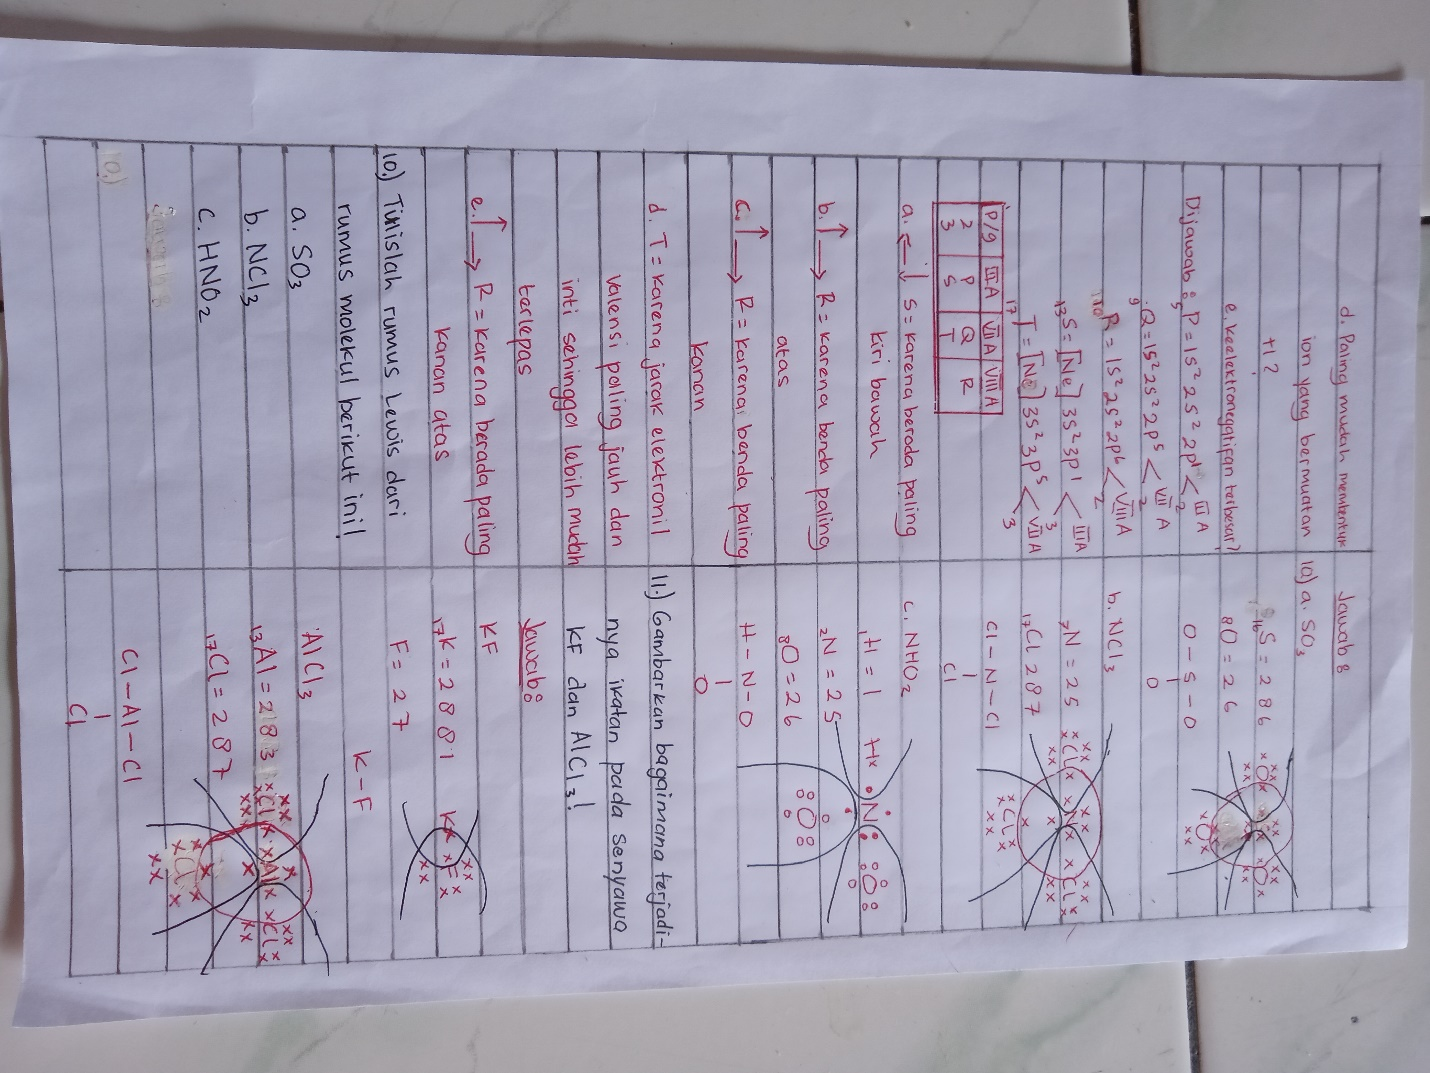 d. Paling mudah membentuk
ion yang bermuatan
+1?
e. Keelektronegatifan terbesar?
Dijawab: ₅P = 1s² 2s² 2p¹ < IIIA 2
₉Q = 1s² 2s² 2p⁵ < VIIA 2
₁₀R = 1s² 2s² 2p⁶ < VIIIA 2
₁₃S = [Ne] 3s² 3p¹ < IIIA 3
₁₇T = [Ne] 3s² 3p⁵ < VIIA 3
P/g IIIA VIIA VIIIA
2 P Q R
3 S T
a. ←↓ S = karena berada paling
kiri bawah
b. ↑→ R = karena benda paling
atas
c. ↑→ R = karena benda paling
kanan
d. T = karena jarak elektronil
valensi paling jauh dan
inti sehingga lebih mudah
terlepas
e. ↑→ R = karena berada paling
kanan atas
10.) Tunislah rumus Lewis dari
rumus molekul berikut inil
a. SO₃
b. NCl₃
c. HNO₂
10.)
Jawab:
10) a. SO₃
₁₆S = 2 8 6
₈O = 2 6
O - S - O
O
b. NCl₃
₇N = 2 5
₁₇Cl 2 8 7
Cl - N - Cl
Cl
Cl N Cl
Cl
c. NHO₂
₁H = 1
₇N = 2 5
₈O = 2 6
H - N - O
O
H N O
O
11.) Gambarkan bagaimana terjadi-
nya ikatan pada senyawa
KF dan AlCl₃!
Jawab:
KF
₁₇K = 2 8 8 1
F = 2 7
K F
K - F
AlCl₃
₁₃Al = 2 8 3
₁₇Cl = 2 8 7
Cl Al Cl
Cl
Cl - Al - Cl
Cl